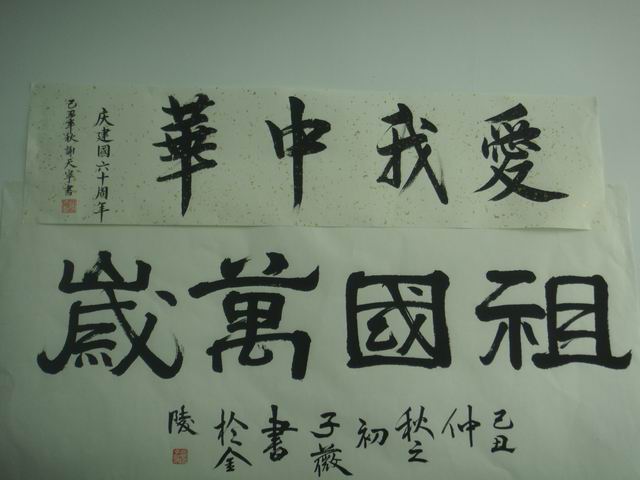 愛我中華
庆建國六十周年
己丑年秋谢天軍書
祖國萬歲
己丑
仲
秋之
初
子薇
書
於金
陵